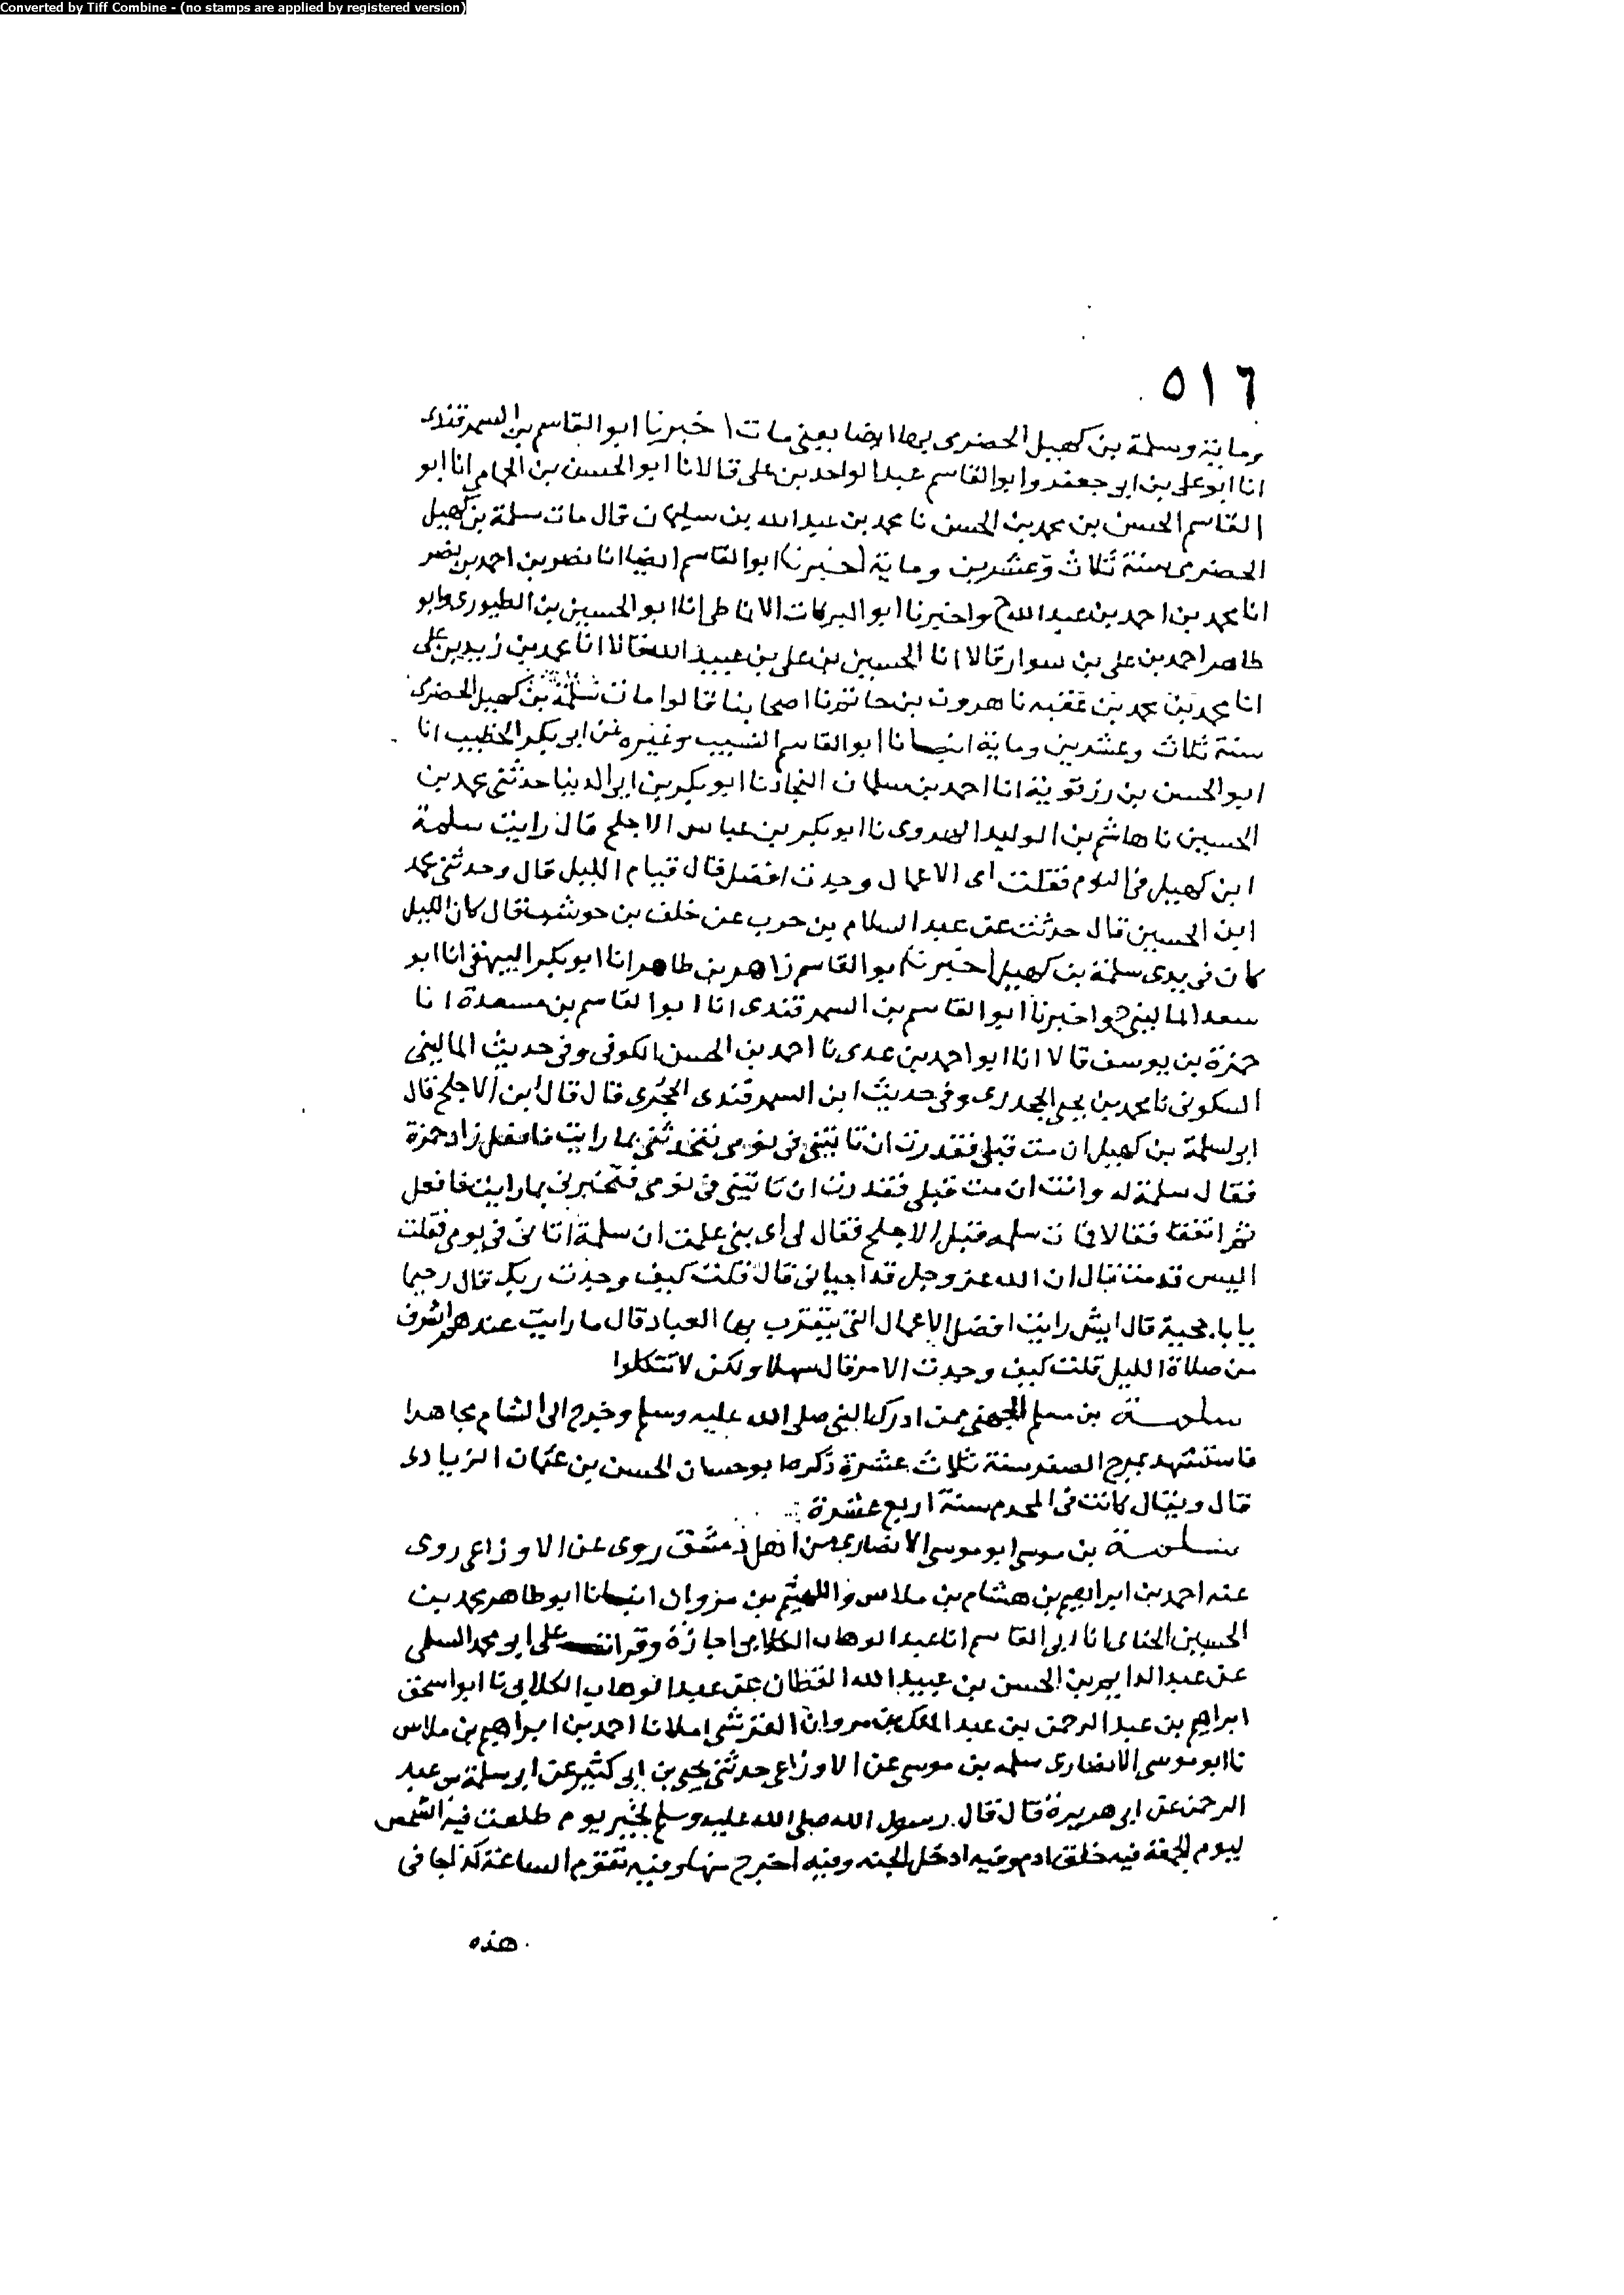 Converted by Tiff Combine - (no stamps are applied by registered version)
٥١٦
وماية وسلمة بن كهيل الحضرمى يها ايضا يعنى مات اخبرنا ابوالقاسم بن السمرقندى
انا ابوعلى بن ابى جعفر وابوالقاسم عبدالواحد بن على قالا نا ابوالحسن بن الحامى انا ابو
القاسم الحسن بن محمد بن الحسن نا محمد بن عبدالله بن سليمان قال مات سلمة بن كهيل
الحضرمى سنة ثلاث وعشرين وماية اخبرنا ابوالقاسم ايضا انا نصر بن احمد بن نصر
انا محمد بن احمد بن عبدالله ح واخبرنا ابوالبركات الانماطى انا ابوالحسين بن الطيورى وابو
طاهر احمد بن على بن سوار قالا انا الحسين بن على بن عبيدالله قالا انا محمد بن زيد بن على
انا محمد بن محمد بن عقبه نا هرون بن حاتم نا اصحابنا قالوا مات سلمة بن كهيل الحضرى
سنة ثلاث وعشرين وماية انبانا ابوالقاسم النسيب وغيره عن ابى بكر الخطيب انا
ابوالحسن بن رزقوية انا احمد بن سلمان النجاد نا ابوبكر بن ابى الدنيا حدثنى محمد بن
الحسين نا هاشم بن الوليد الهروى نا ابوبكر بن عياش الاجلح قال رايت سلمة
ابن كهيل فى النوم فقلت اى الاعمال وجدت افضل قال قيام الليل قال وحدثنى محمد
ابن الحسين قال حدثت عن عبدالسلام بن حرب عن خلف بن حوشب قال كان الليل
كان فى يدى سلمة بن كهيل اخبرنا ابوالقاسم زاهر بن طاهر انا ابوبكر البيهقى انا ابو
سعد المالينى ح واخبرنا ابوالقاسم بن السمرقندى انا ابوالقاسم بن مسعدة انا
حمزة بن يوسف قالا انا ابواحمد بن عدى نا احمد بن الحسن الكوفى وفى حديث المالينى
السكونى نا محمد بن يحيى الجحدرى وفى حديث ابن السمرقندى الحجرى قال قال ابن الاجلح قال
ابى لسلمة بن كهيل ان مت قبلى فقدرت ان تاتينى فى نومى فتحدثنى بما رايت فافعل زاد حمزة
فقال سلمة له وانت ان مت قبلى فقدرت ان تاتينى فى نومى فتخبرنى بما رايت فافعل
ثم اتفقا فقالا فمات سلمه قبل الاجلح فقال لى اى بنى علمت ان سلمة اتانى فى نومى فقلت
اليس قد مت قال ان الله عز وجل قد احيانى قال قلت كيف وجدت ربك قال رحيما
يابا حجية قال ايش رايت افضل الاعمال التى يتقرب بها العباد قال ما رايت عندهم اشرف
من صلاة الليل قلت كيف وجدت الامر قال سهلا ولكن لا تتكلوا
سلمة بن مسلم الجهنى ممن ادرك النبى صلى الله عليه وسلم وخرج الى الشام مجاهدا
فاستشهد بمرج الصفر سنة ثلاث عشرة ذكره ابوحسان الحسن بن عثمان الزيادى
قال ويقال كانت فى المحرم سنة اربع عشرة
سلمة بن موسى ابوموسى الانصارى من اهل دمشق روى عن الاوزاعى روى
عنه احمد بن ابراهيم بن هشام بن ملاس والهيثم بن مروان انبانا ابوطاهر محمد بن
الحسين الحناى انا ابى القاسم انا عبدالوهاب الكلابى اجازة وقرات على ابى محمد السلمى
عن عبدالدايم بن الحسن بن عبيدالله القطان عن عبدالوهاب الكلابى نا ابواسحق
ابراهيم بن عبدالرحمن بن عبدالملك بن مروان القرشى املا نا احمد بن ابراهيم بن ملاس
نا ابوموسى الانصارى سلمه بن موسى عن الاوزاعى حدثنى يحيى بن ابى كثير عن ابى سلمة بن عبد
الرحمن عن ابى هريرة قال قال رسول الله صلى الله عليه وسلم لخير يوم طلعت فيه الشمس
ليوم الجمعة فيه خلق ادم وفيه ادخل الجنه وفيه اخرج منها وفيه تقوم الساعة كذا جا فى
هذه